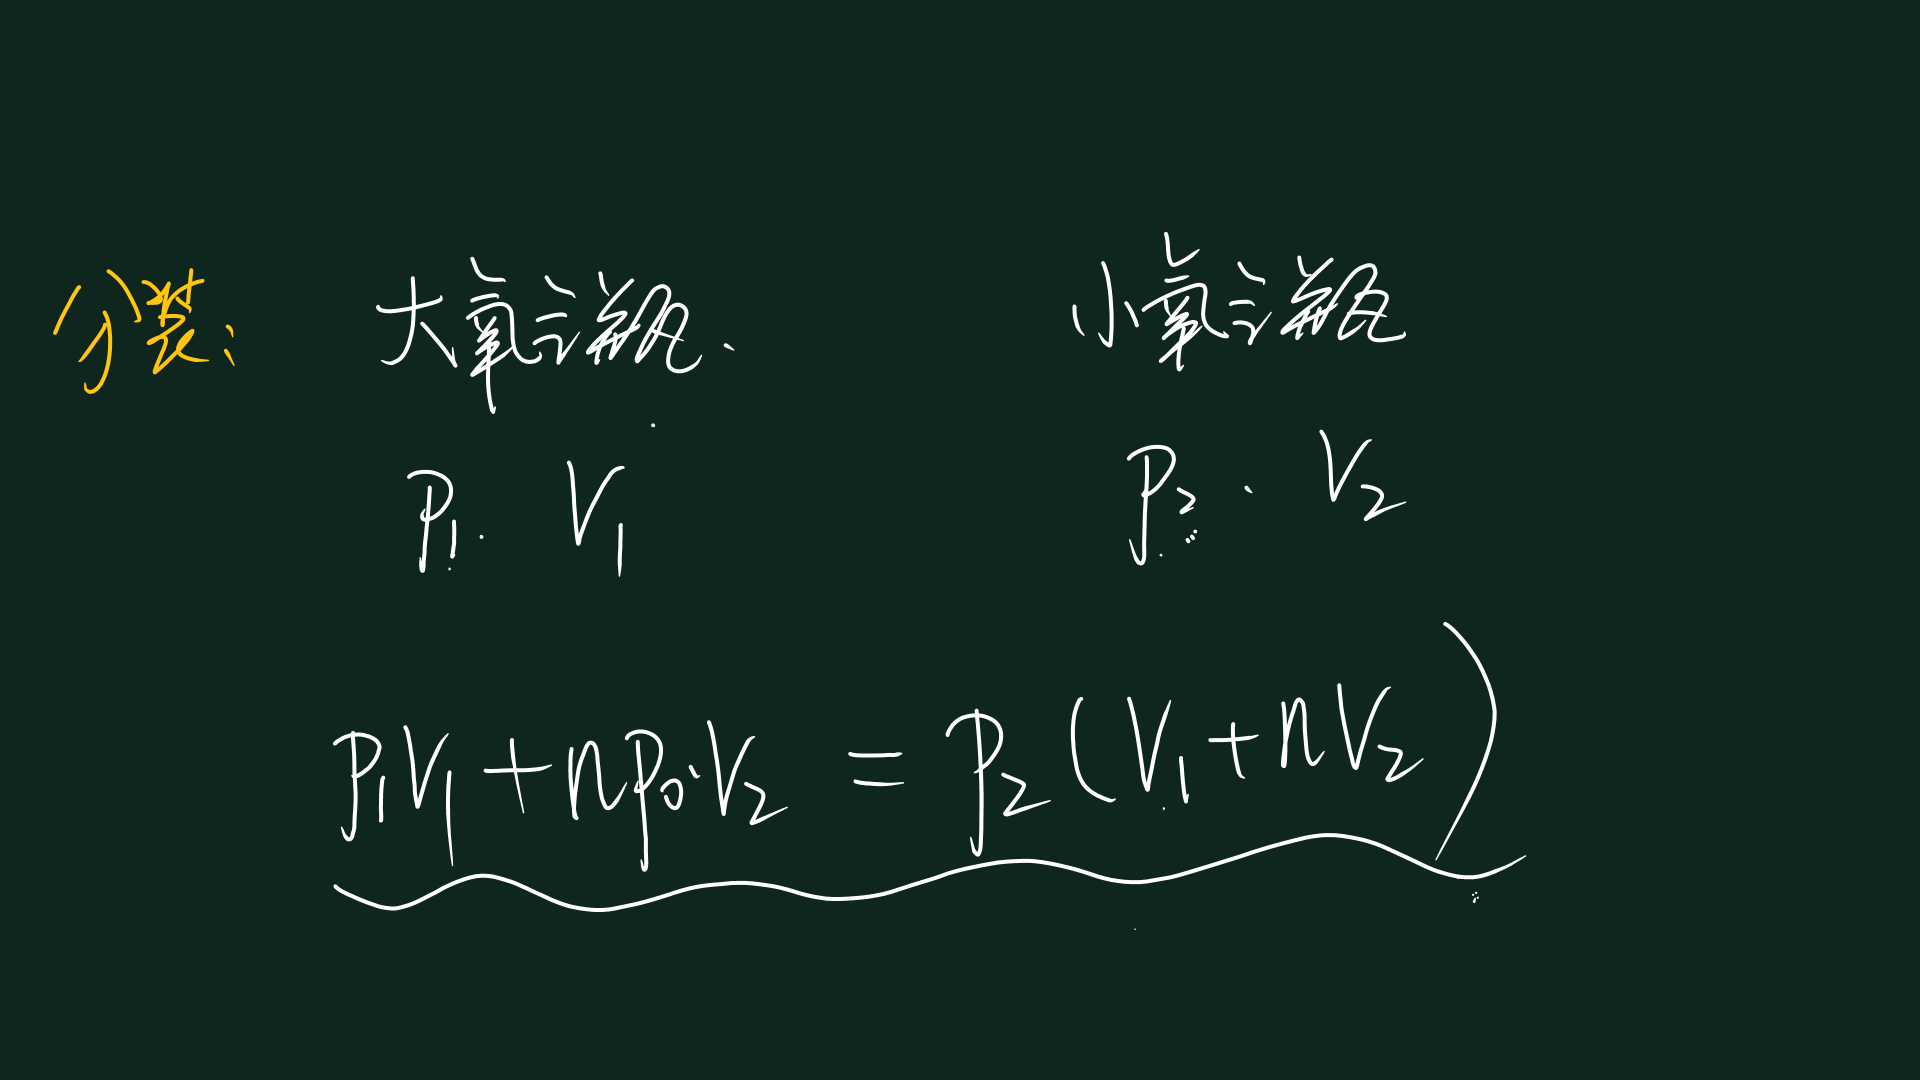 分装: 大氧气瓶. 小氧气瓶
P₁. V₁ P₂. V₂
P₁V₁+nP₀·V₂ = P₂(V₁+nV₂)